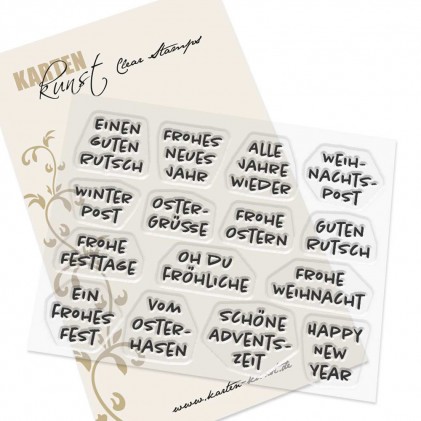 KARTEN
Kunst Clear Stamps
EINEN
GUTEN
RUTSCH
FROHES
NEUES
JAHR
ALLE
JAHRE
WIEDER
WEIH-
NACHTS-
POST
WINTER
POST
OSTER-
GRÜSSE
FROHE
OSTERN
GUTEN
RUTSCH
FROHE
FESTTAGE
OH DU
FRÖHLICHE
FROHE
WEIHNACHT
EIN
FROHES
FEST
VOM
OSTER-
HASEN
SCHÖNE
ADVENTS-
ZEIT
HAPPY
NEW
YEAR
www.karten-kunst.de